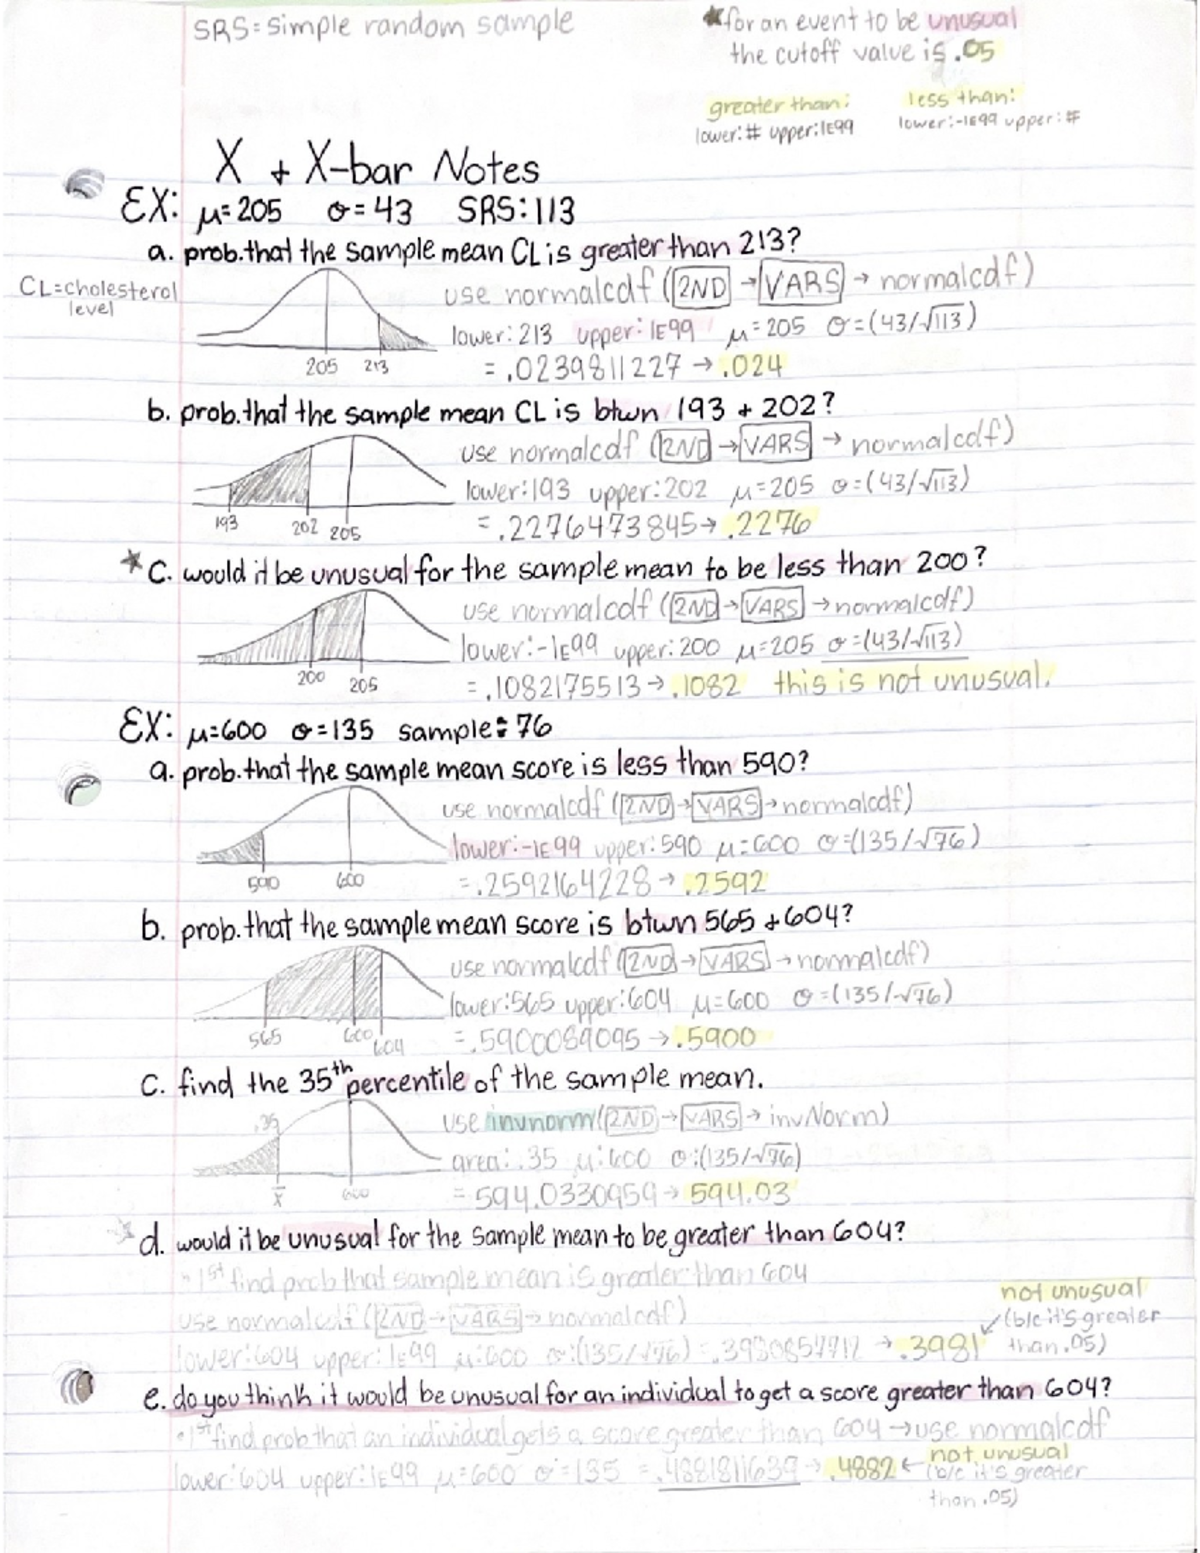 SRS=simple random sample
*for an event to be unusual
the cutoff value is .05
greater than:
lower:# upper:1E99
less than:
lower:-1E99 upper:#
X + X-bar Notes
EX: μ=205 σ=43 SRS:113
a. prob.that the sample mean CL is greater than 213?
CL=cholesterol
level
use normalcdf (2ND → VARS → normalcdf)
lower:213 upper:1E99 μ=205 σ=(43/√113)
205 213
= .0239811227 → .024
b. prob.that the sample mean CL is btwn 193 + 202?
use normalcdf (2ND → VARS → normalcdf)
lower:193 upper:202 μ=205 σ=(43/√113)
193 202 205
= .2276473845 → .2276
*c. would it be unusual for the sample mean to be less than 200?
use normalcdf (2ND → VARS → normalcdf)
lower:-1E99 upper:200 μ=205 σ=(43/√113)
200 205
= .1082175513 → .1082 this is not unusual.
EX: μ=600 σ=135 sample: 76
a. prob.that the sample mean score is less than 590?
use normalcdf (2ND → VARS → normalcdf)
lower:-1E99 upper:590 μ=600 σ=(135/√76)
590 600
= .2592164228 → .2592
b. prob.that the sample mean score is btwn 565 + 604?
use normalcdf (2ND → VARS → normalcdf)
lower:565 upper:604 μ=600 σ=(135/√76)
565 600 604
= .5900089095 → .5900
c. find the 35th percentile of the sample mean.
.35
use invnorm (2ND → VARS → invNorm)
area: .35 μ:600 σ:(135/√76)
x̄ 600
= 594.0330959 → 594.03
*d. would it be unusual for the sample mean to be greater than 604?
• 1st find prob that sample mean is greater than 604
use normalcdf (2ND → VARS → normalcdf)
not unusual
(b/c it's greater
than .05)
lower:604 upper:1E99 μ:600 σ:(135/√76) = → .3981
e. do you think it would be unusual for an individual to get a score greater than 604?
• 1st find prob that an individual gets a score greater than 604 → use normalcdf
lower:604 upper:1E99 μ=600 σ=135 = .4881811639 → .4882 ← not unusual
(b/c it's greater
than .05)